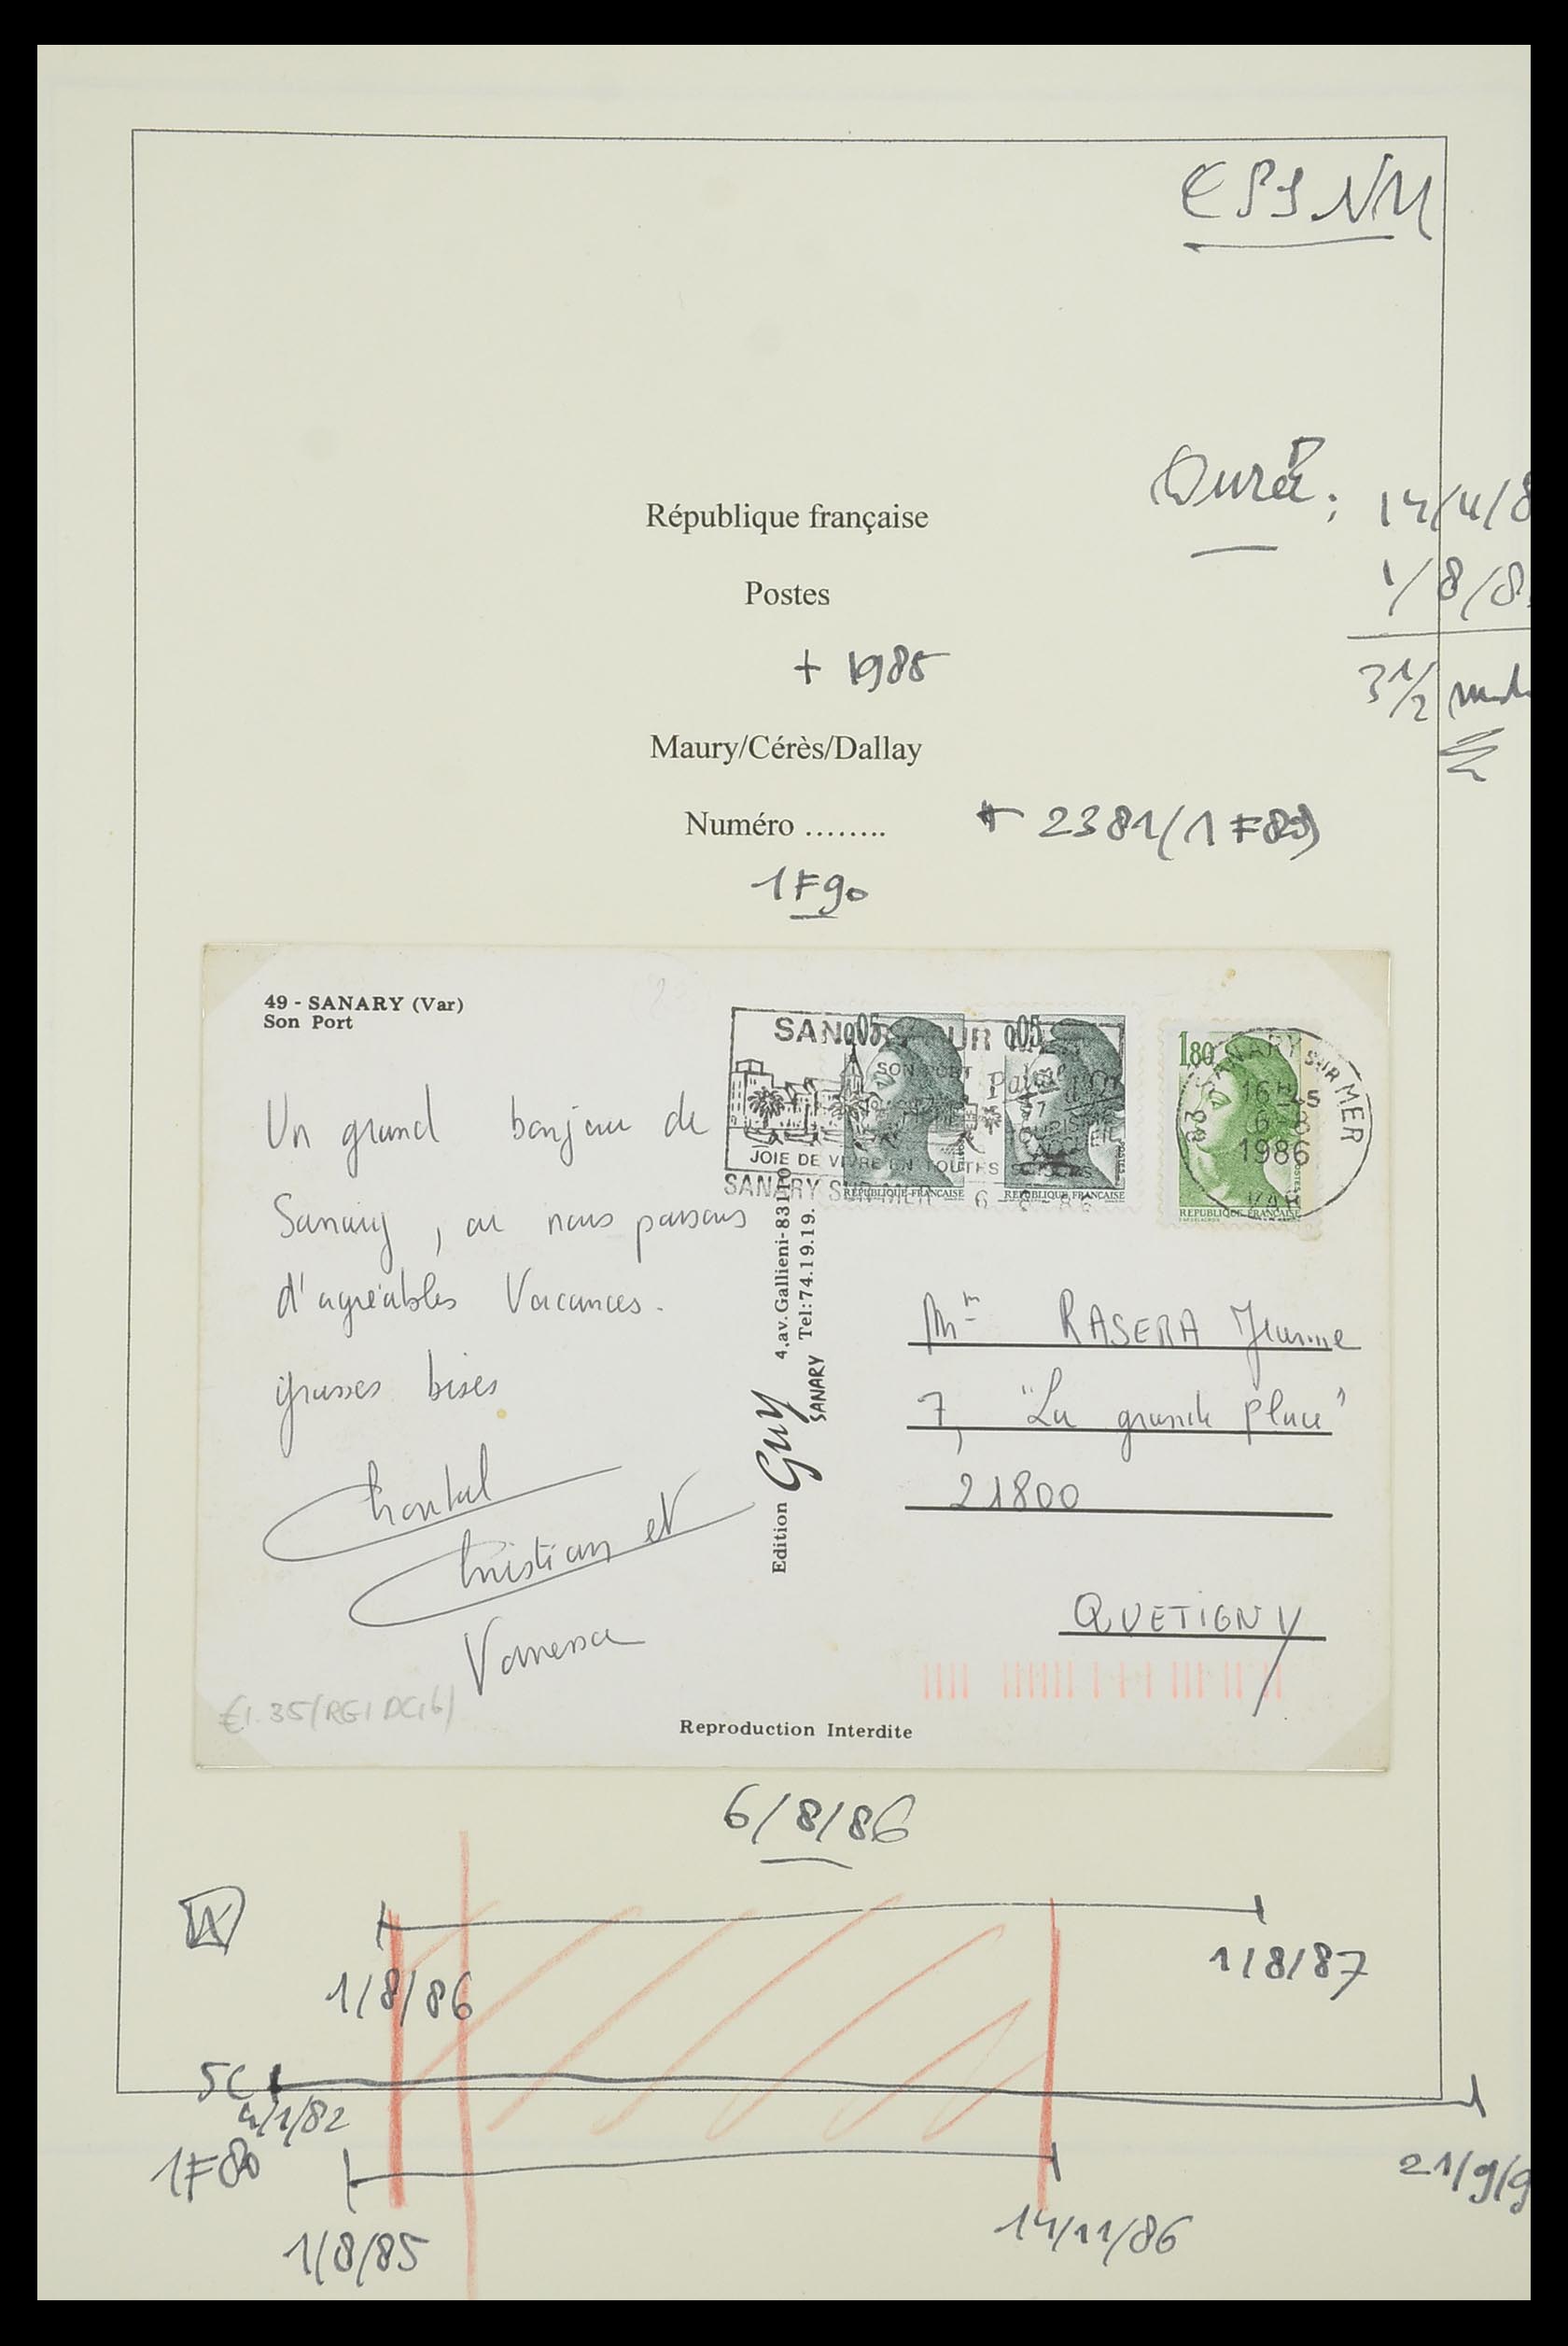 République française
Durée: 14/4/8
Postes
1/8/8
+ 1985
3 1/2
Maury/Cérès/Dallay
Numéro ........ + 2381(1F80)
1F90
49 - SANARY (Var)
Son Port
SANARY SUR
SON PORT
JOIE DE VIVRE EN TOUTES SAISONS
SANARY SUR MER 6-8-86
0,05
REPUBLIQUE FRANCAISE
0,05
REPUBLIQUE FRANCAISE
1,80
REPUBLIQUE FRANCAISE
83 SANARY SUR MER
16H45
6-8
1986
VAR
Un grand bonjour de
Sanary, où nous passons
d'agréables Vacances.
grosses bises
Chantal
Christian et
Vanessa
Edition Guy SANARY
4, av. Gallieni-83110
Tel: 74.19.19.
Mme RASERA Jeanne
7, "La grande place"
21800
QUETIGNY
€1.35/(RGIDC16)
Reproduction Interdite
6/8/86
1/8/86
1/8/87
5C
4/1/82
21/9/9
1F80
1/8/85
14/11/86